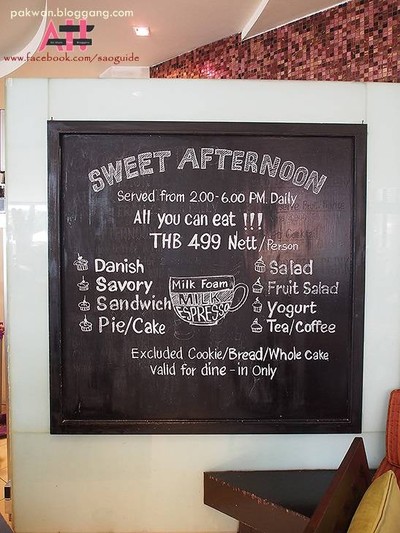 pakwan.bloggang.com
www.facebook.com/saoguide
SWEET AFTERNOON
Served from 2.00-6.00 PM. Daily
All you can eat !!!
THB 499 Nett/Person
Danish
Savory
Sandwich
Pie/Cake
Milk Foam
MILK
ESPRESSO
Salad
Fruit Salad
Yogurt
Tea/Coffee
Excluded Cookie/Bread/Whole Cake
Valid for dine-in Only